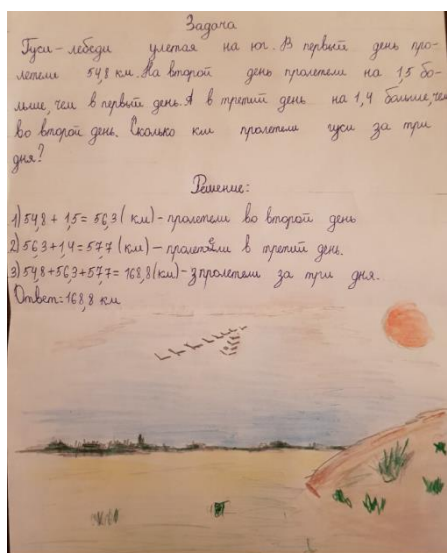 Задача
Гуси-лебеди улетая на юг. В первый день про-
летели 54,8 км. На второй день пролетели на 1,5 бо-
льше, чем в первый день. А в третий день на 1,4 больше, чем
во второй день. Сколько км пролетели гуси за три
дня?
Решение:
1) 54,8 + 1,5 = 56,3 (км) - пролетели во второй день
2) 56,3 + 1,4 = 57,7 (км) - пролетели в третий день.
3) 54,8 + 56,3 + 57,7 = 168,8 (км) - пролетели за три дня.
Ответ: 168,8 км